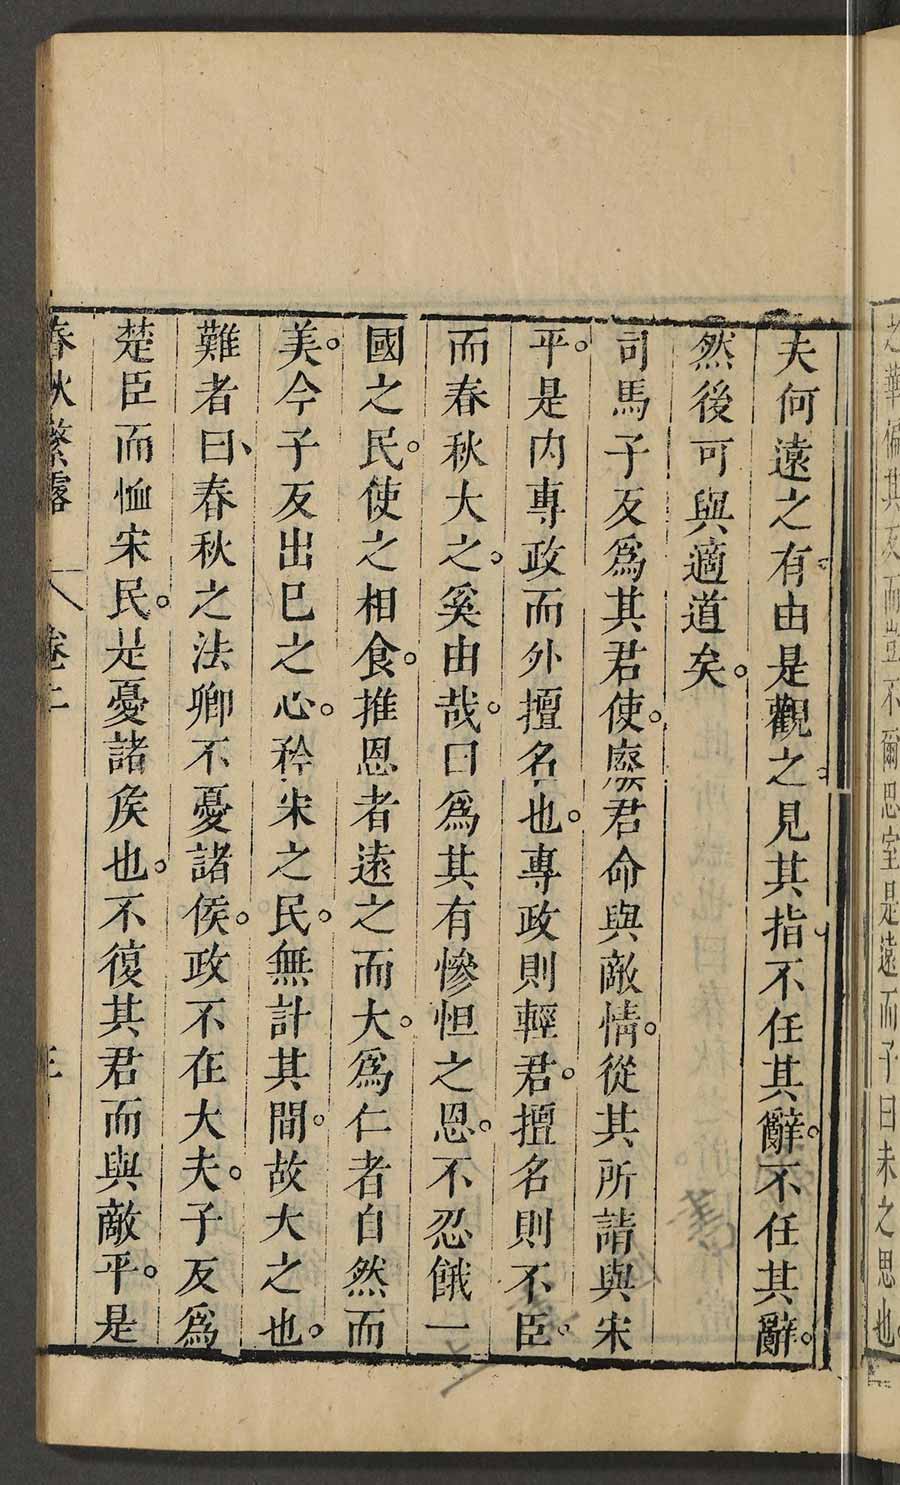 之華偏其反而豈不爾思室是遠而子曰未之思也
夫何遠之有。由是觀之、見其指、不任其辭。不任其辭。
然後可與適道矣。
司馬子反爲其君使。廢君命與敵情。從其所請與宋
平。是内專政而外擅名也。專政則輕君。擅名則不臣。
而春秋大之。奚由哉。曰爲其有慘怛之恩。不忍餓一
國之民。使之相食。推恩者遠之而大。爲仁者自然而
美。今子反出巳之心。矜宋之民。無計其間。故大之也。
難者曰、春秋之法卿不憂諸侯。政不在大夫。子反爲
楚臣而恤宋民。是憂諸矦也。不復其君而與敵平。是
春秋繁露 卷二